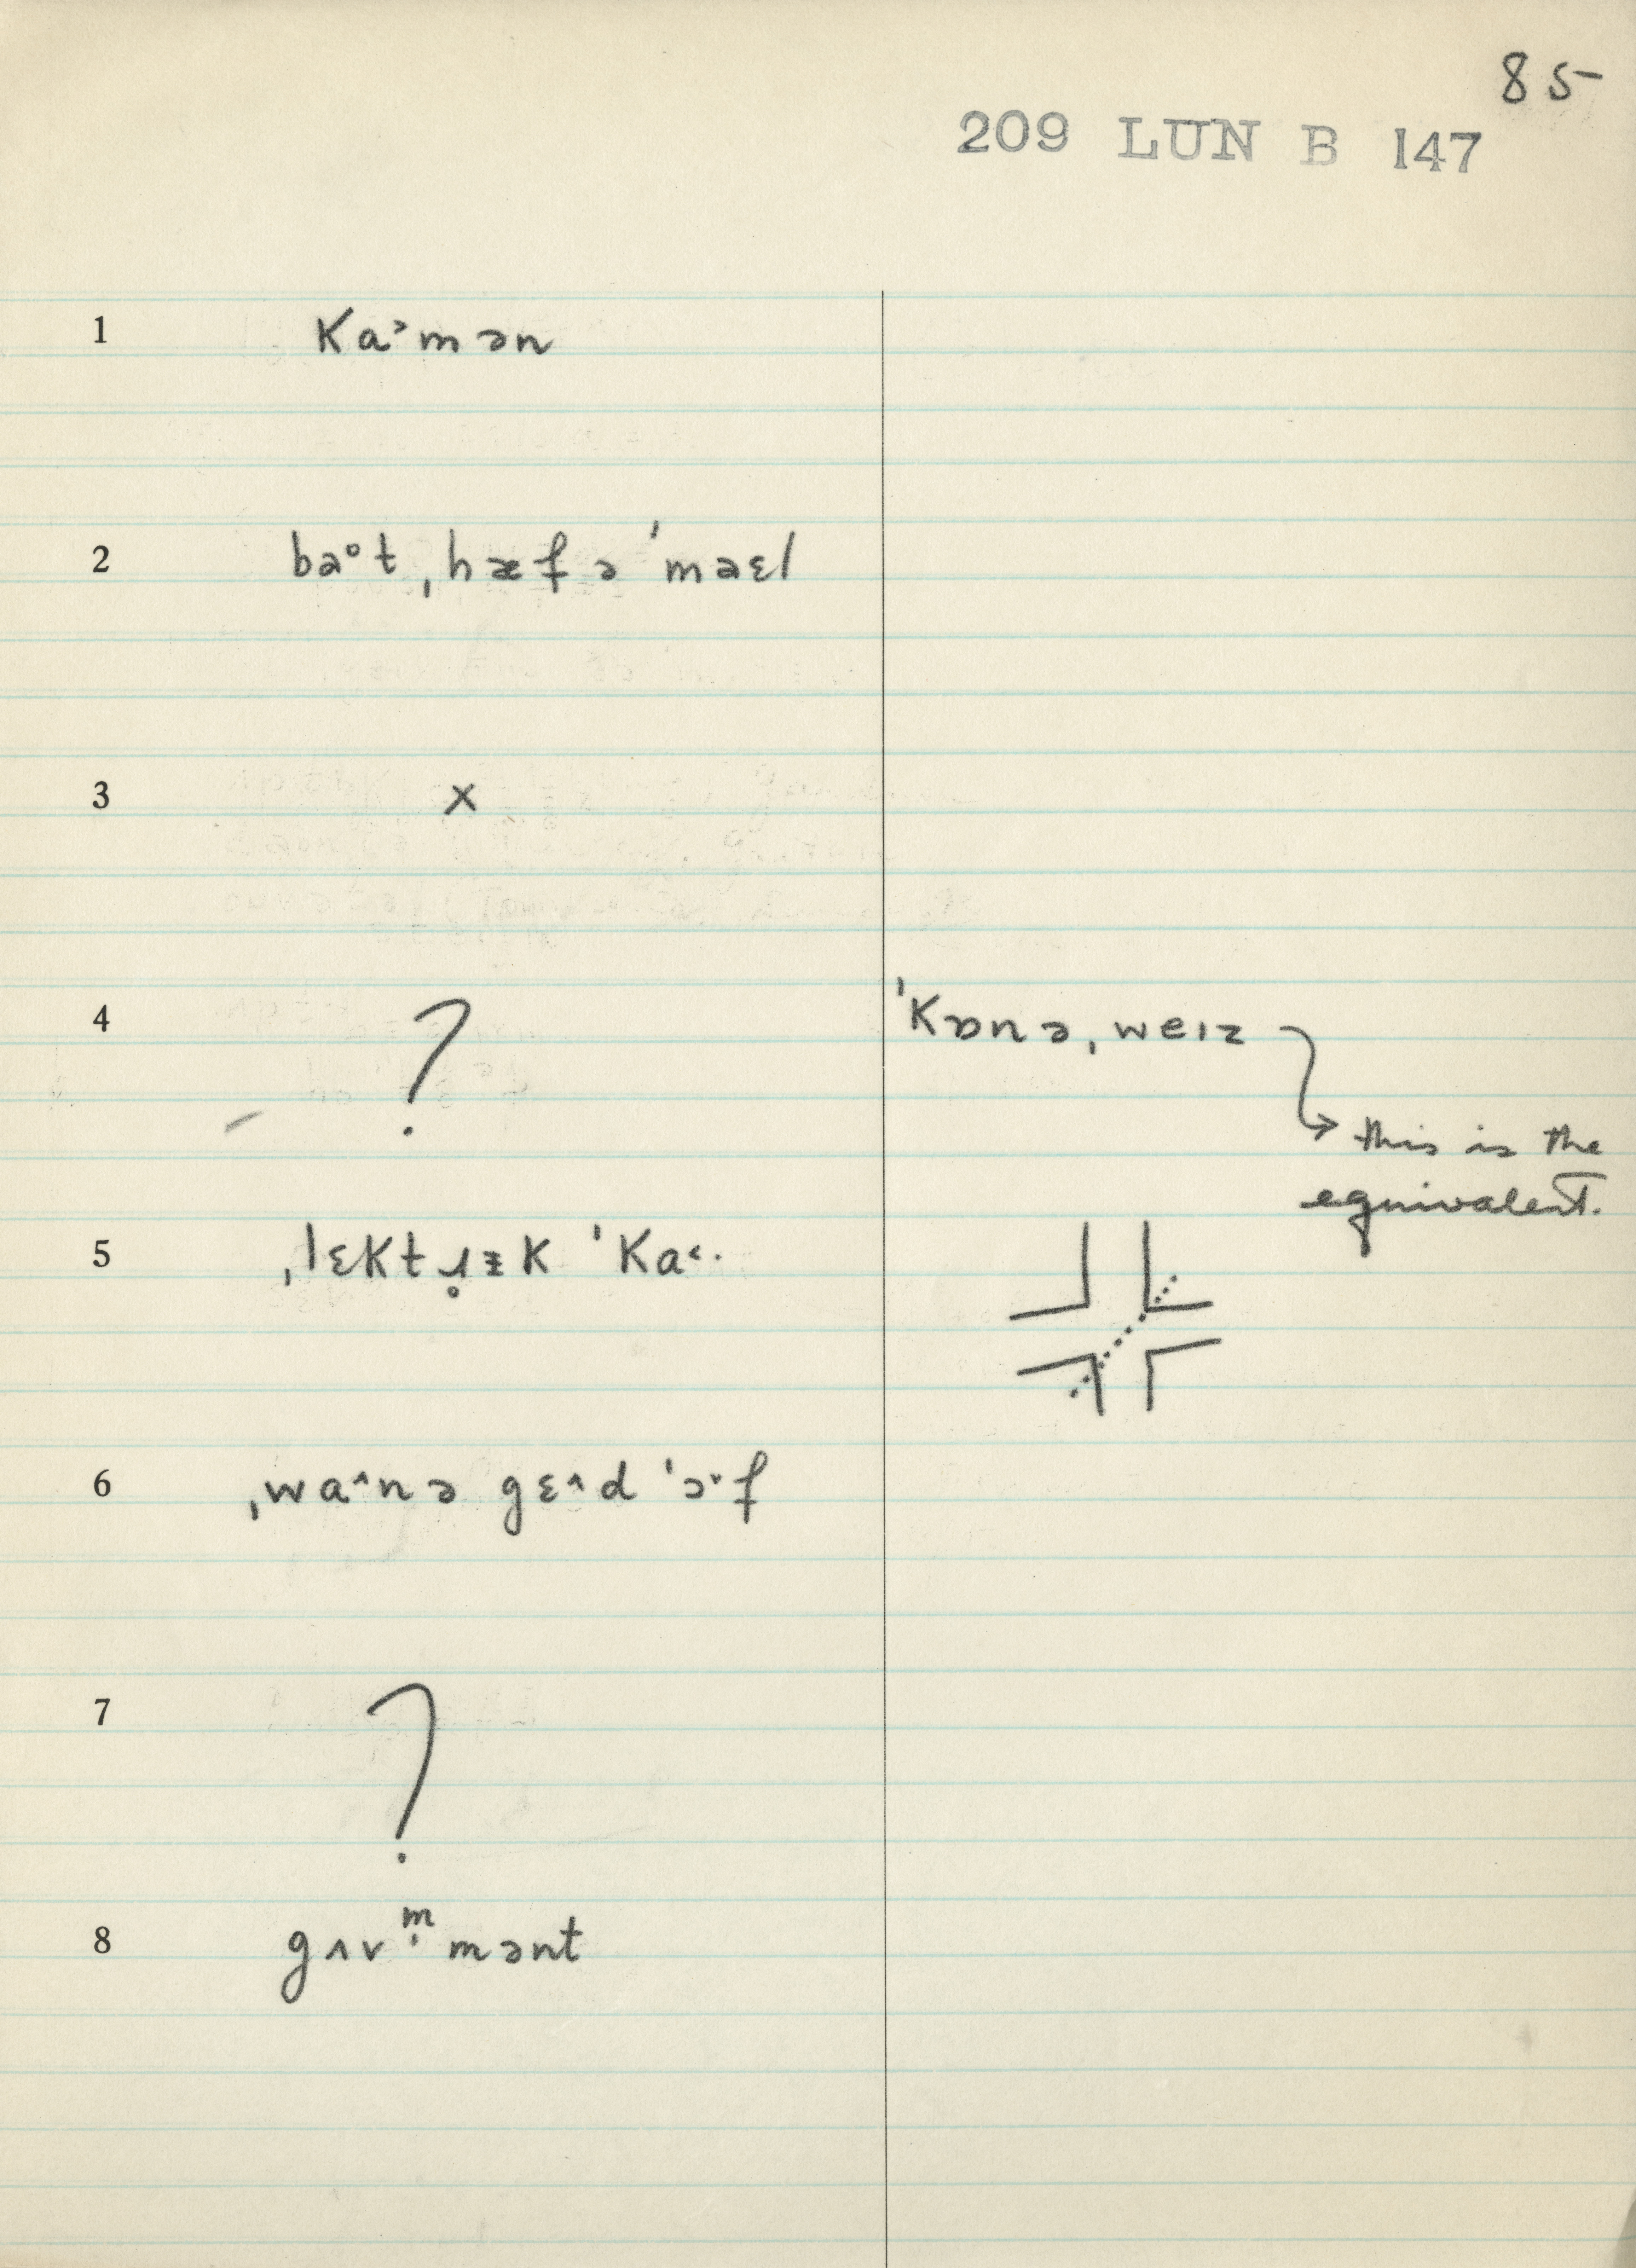 85
209 LUN B 147
1 ka˃mən
2 bəot ˌhæf ə ˈmaɛl
3 x
4 ? ˈkɒnəˌweɪz
this is the
equivalent.
5 ˌlɛktɹ̥ɪ̵k ˈka˂·
6 ˌwa˄nə gɛ˄d ˈɔ˅·f
7 ?
8 gʌvm̩mənt